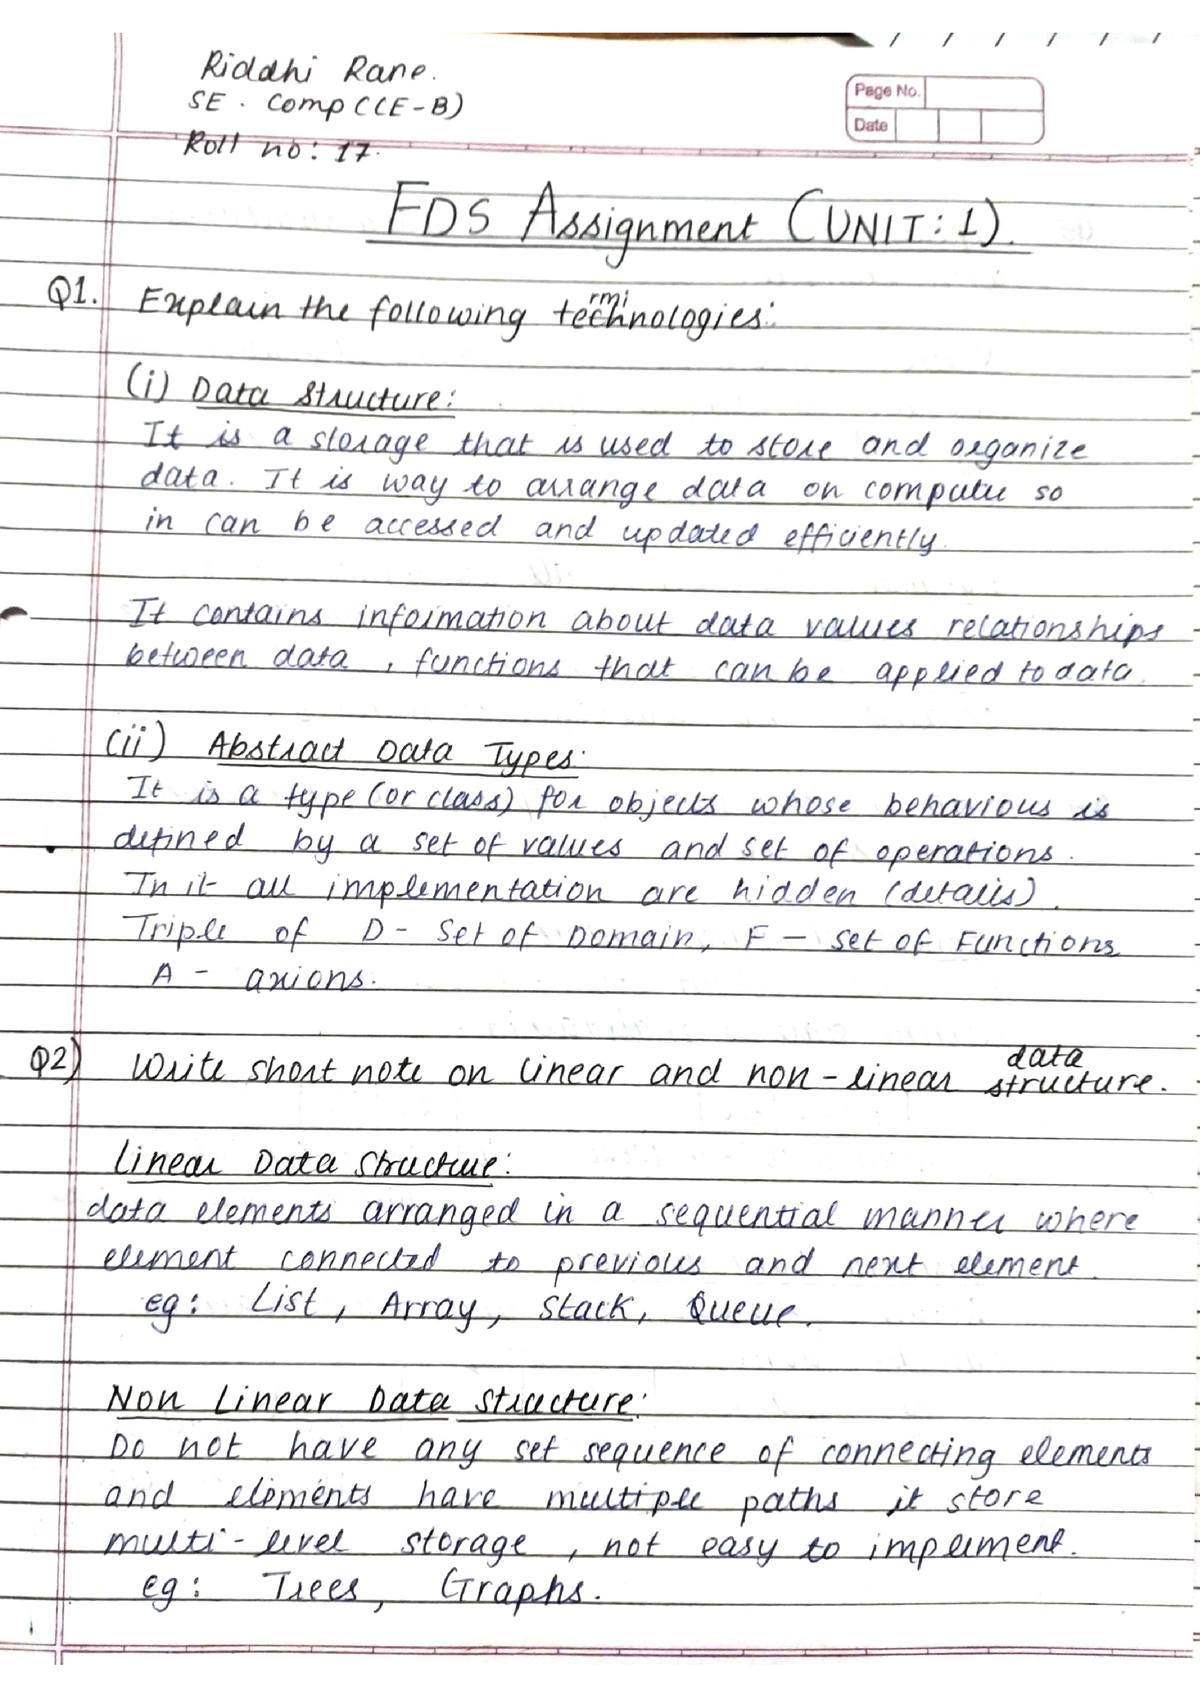 Riddhi Rane.
SE. Comp (CE-B)
Roll no: 17.
Page No.
Date
FDS Assignment (UNIT: 1).
rmi
Q1. Explain the following technologies:
(i) Data Structure:
It is a storage that is used to store and organize
data. It is way to arrange data on computer so
in can be accessed and updated efficiently.
It contains information about data values relationships
between data, functions that can be applied to data.
(ii) Abstract Data Types:
It is a type (or class) for objects whose behavious is
defined by a set of values and set of operations.
In it all implementation are hidden (details).
Triple of D- Set of Domain, F- set of Functions
A- axions.
Q2) Write short note on linear and non-linear data structure.
Linear Data Structure:
data elements arranged in a sequential manner where
element connected to previous and next element.
eg: List, Array, Stack, Queue.
Non Linear Data Structure:
Do not have any set sequence of connecting elements
and elements have multiple paths it store
multi-level storage, not easy to implement.
eg: Trees, Graphs.